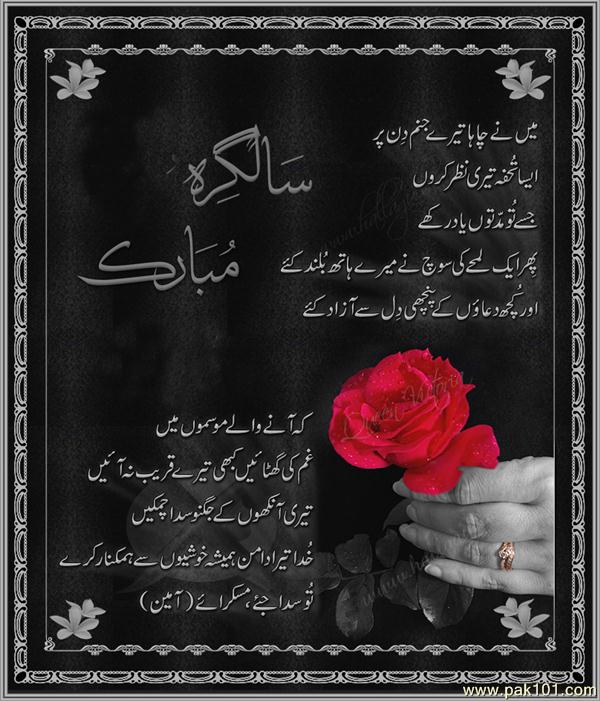 سَالگِرہ
مُبَارک
میں نے چاہا تیرے جنم دِن پر
ایسا تُحفہ تیری نظر کروں
جسے تُو مدّتوں یاد رکھے
پھر ایک لمحے کی سوچ نے میرے ہاتھ بُلند کئے
اور کُچھ دعاؤں کے پنچھی دِل سے آزاد کئے
کہ آنے والے موسموں میں
غم کی گھٹائیں کبھی تیرے قریب نہ آئیں
تیری آنکھوں کے جگنو سدا چمکیں
خُدا تیرا دامن ہمیشہ خوشیوں سے ہمکنار کرے
تُو سدا جئے، مسکرائے (آمین)
www.pak101.com